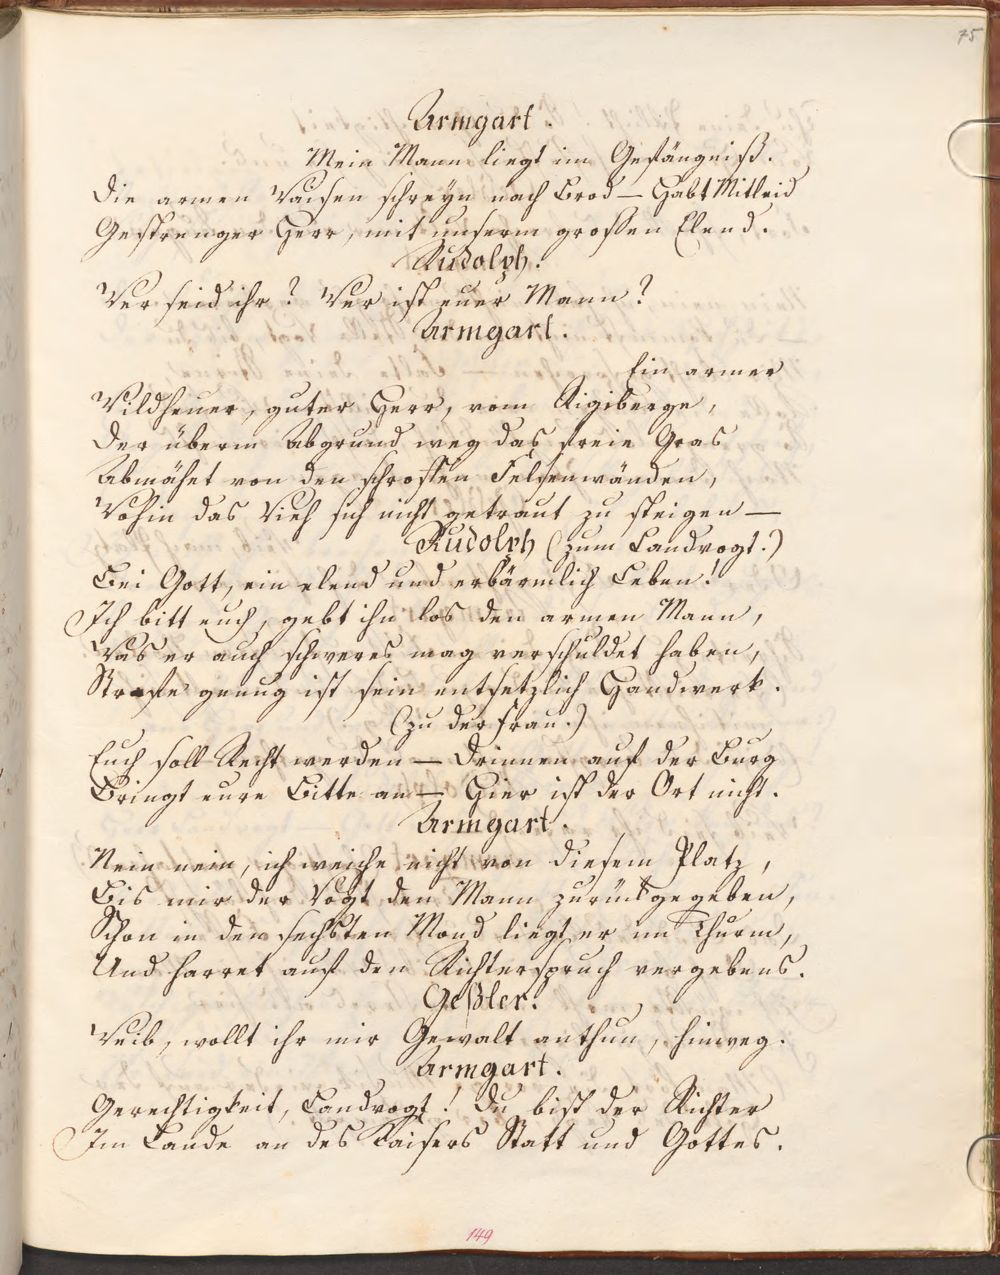 75
Armgart.
Mein Mann liegt im Gefängniß.
Die armen Vaisen schreyn nach Brod — Habt Mitleid
Gestrenger Herr, mit unserm großen Elend.
Rudolph.
Wer seid ihr? Wer ist euer Mann?
Armgart.
Ein armer
Wildheuer, guter Herr, vom Rigiberge,
Der überm Abgrund weg das freie Gras
Abmähet von den schroffen Felsenwänden,
Wohin das Vieh sich nicht getraut zu steigen —
Rudolph (zum Landvogt.)
Bei Gott, ein elend und erbärmlich Leben!
Ich bitt euch, gebt ihn los den armen Mann,
Was er auch schweres mag verschuldet haben,
Strafe genug ist sein entsetzlich Handwerk.
(zu der Frau.)
Euch soll Recht werden — Drinnen auf der Burg
Bringt eure Bitte an — Hier ist der Ort nicht.
Armgart.
Nein nein, ich weiche nicht von diesem Platz,
Bis mir der Vogt den Mann zurükgegeben,
Schon in den sechsten Mond liegt er im Thurm,
Und harret auf den Richterspruch vergebens.
Geßler.
Weib, wollt ihr mir Gewalt anthun, hinweg.
Armgart.
Gerechtigkeit, Landvogt! Du bist der Richter
Im Lande an des Kaisers Statt und Gottes.
149